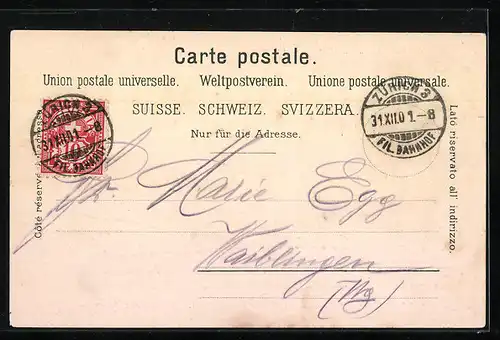 Carte postale.
Union postale universelle. Weltpostverein. Unione postale universale.
SUISSE. SCHWEIZ. SVIZZERA.
Nur für die Adresse.
Côté réservé à l'adresse.
Lato riservato all' indirizzo.
ZÜRICH 3
31.XII.01.-8
FIL. BAHNHOF
ZÜRICH 3
31.XII.01.-8
FIL. BAHNHOF
Marie Egg
Waiblingen
(Wg)